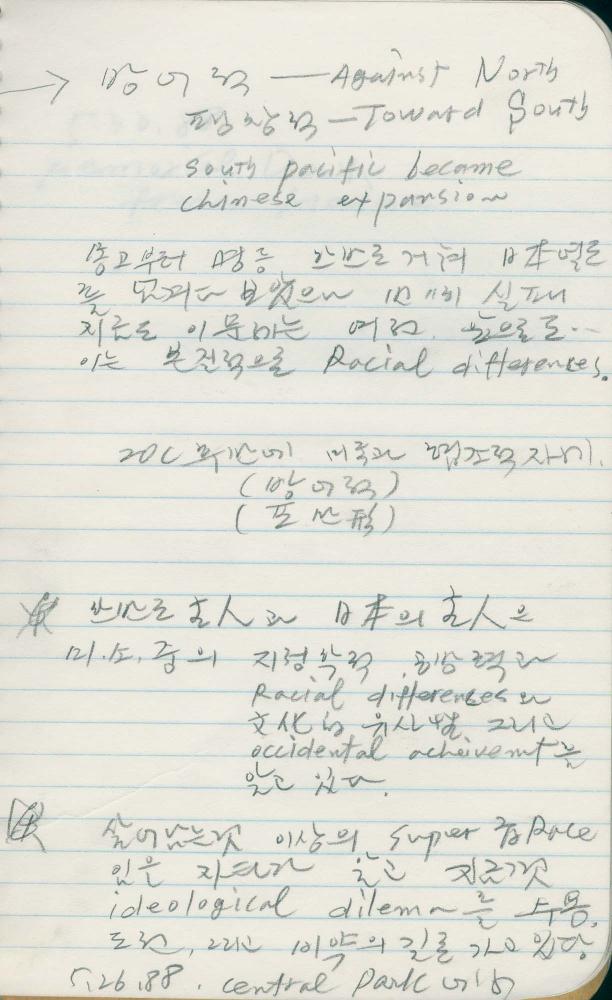 방어력 — Against North
팽창력 — Toward South
South pacific became
chinese expansion
몽고부터 명등 반반도 거쳐 日本열도
를 넘겨다 보았으나 번번히 실패
지금도 이 문제는 여전. 앞으로도..
이는 본질적으로 Racial differences.
20C 후반에 미국과 협조적 자세.
(방어적)
(포산형)
반반도 主人과 日本의 主人은
미.소.중의 지정학적 팽창력과
Racial differences와
文化的 유사性, 그리고
occidental acheivemt를
알고 있다.
살아남는것 이상의 super
있을 자리가 알고 지금것
ideological dilema를 수용,
도전, 그리고 비약의 길로 가고 있당
5.26.88. central park 에서